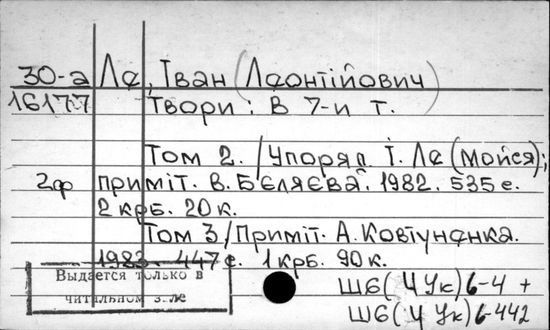 30-а Ле, Іван (Леонтійович)
16177 Твори: В 7-и т.
Том 2. /Упоряд. І. Ле (Мойся);
2ф приміт. В. Бєляєва. 1982. 535 с.
2 крб. 20 к.
Том 3/Приміт. А. Ковтуненка.
1983. 447 с. 1 крб. 90 к.
Выдается только в
читальном зале
Ш6(4 Ук)6-4 +
Ш6(4 Ук)6-442